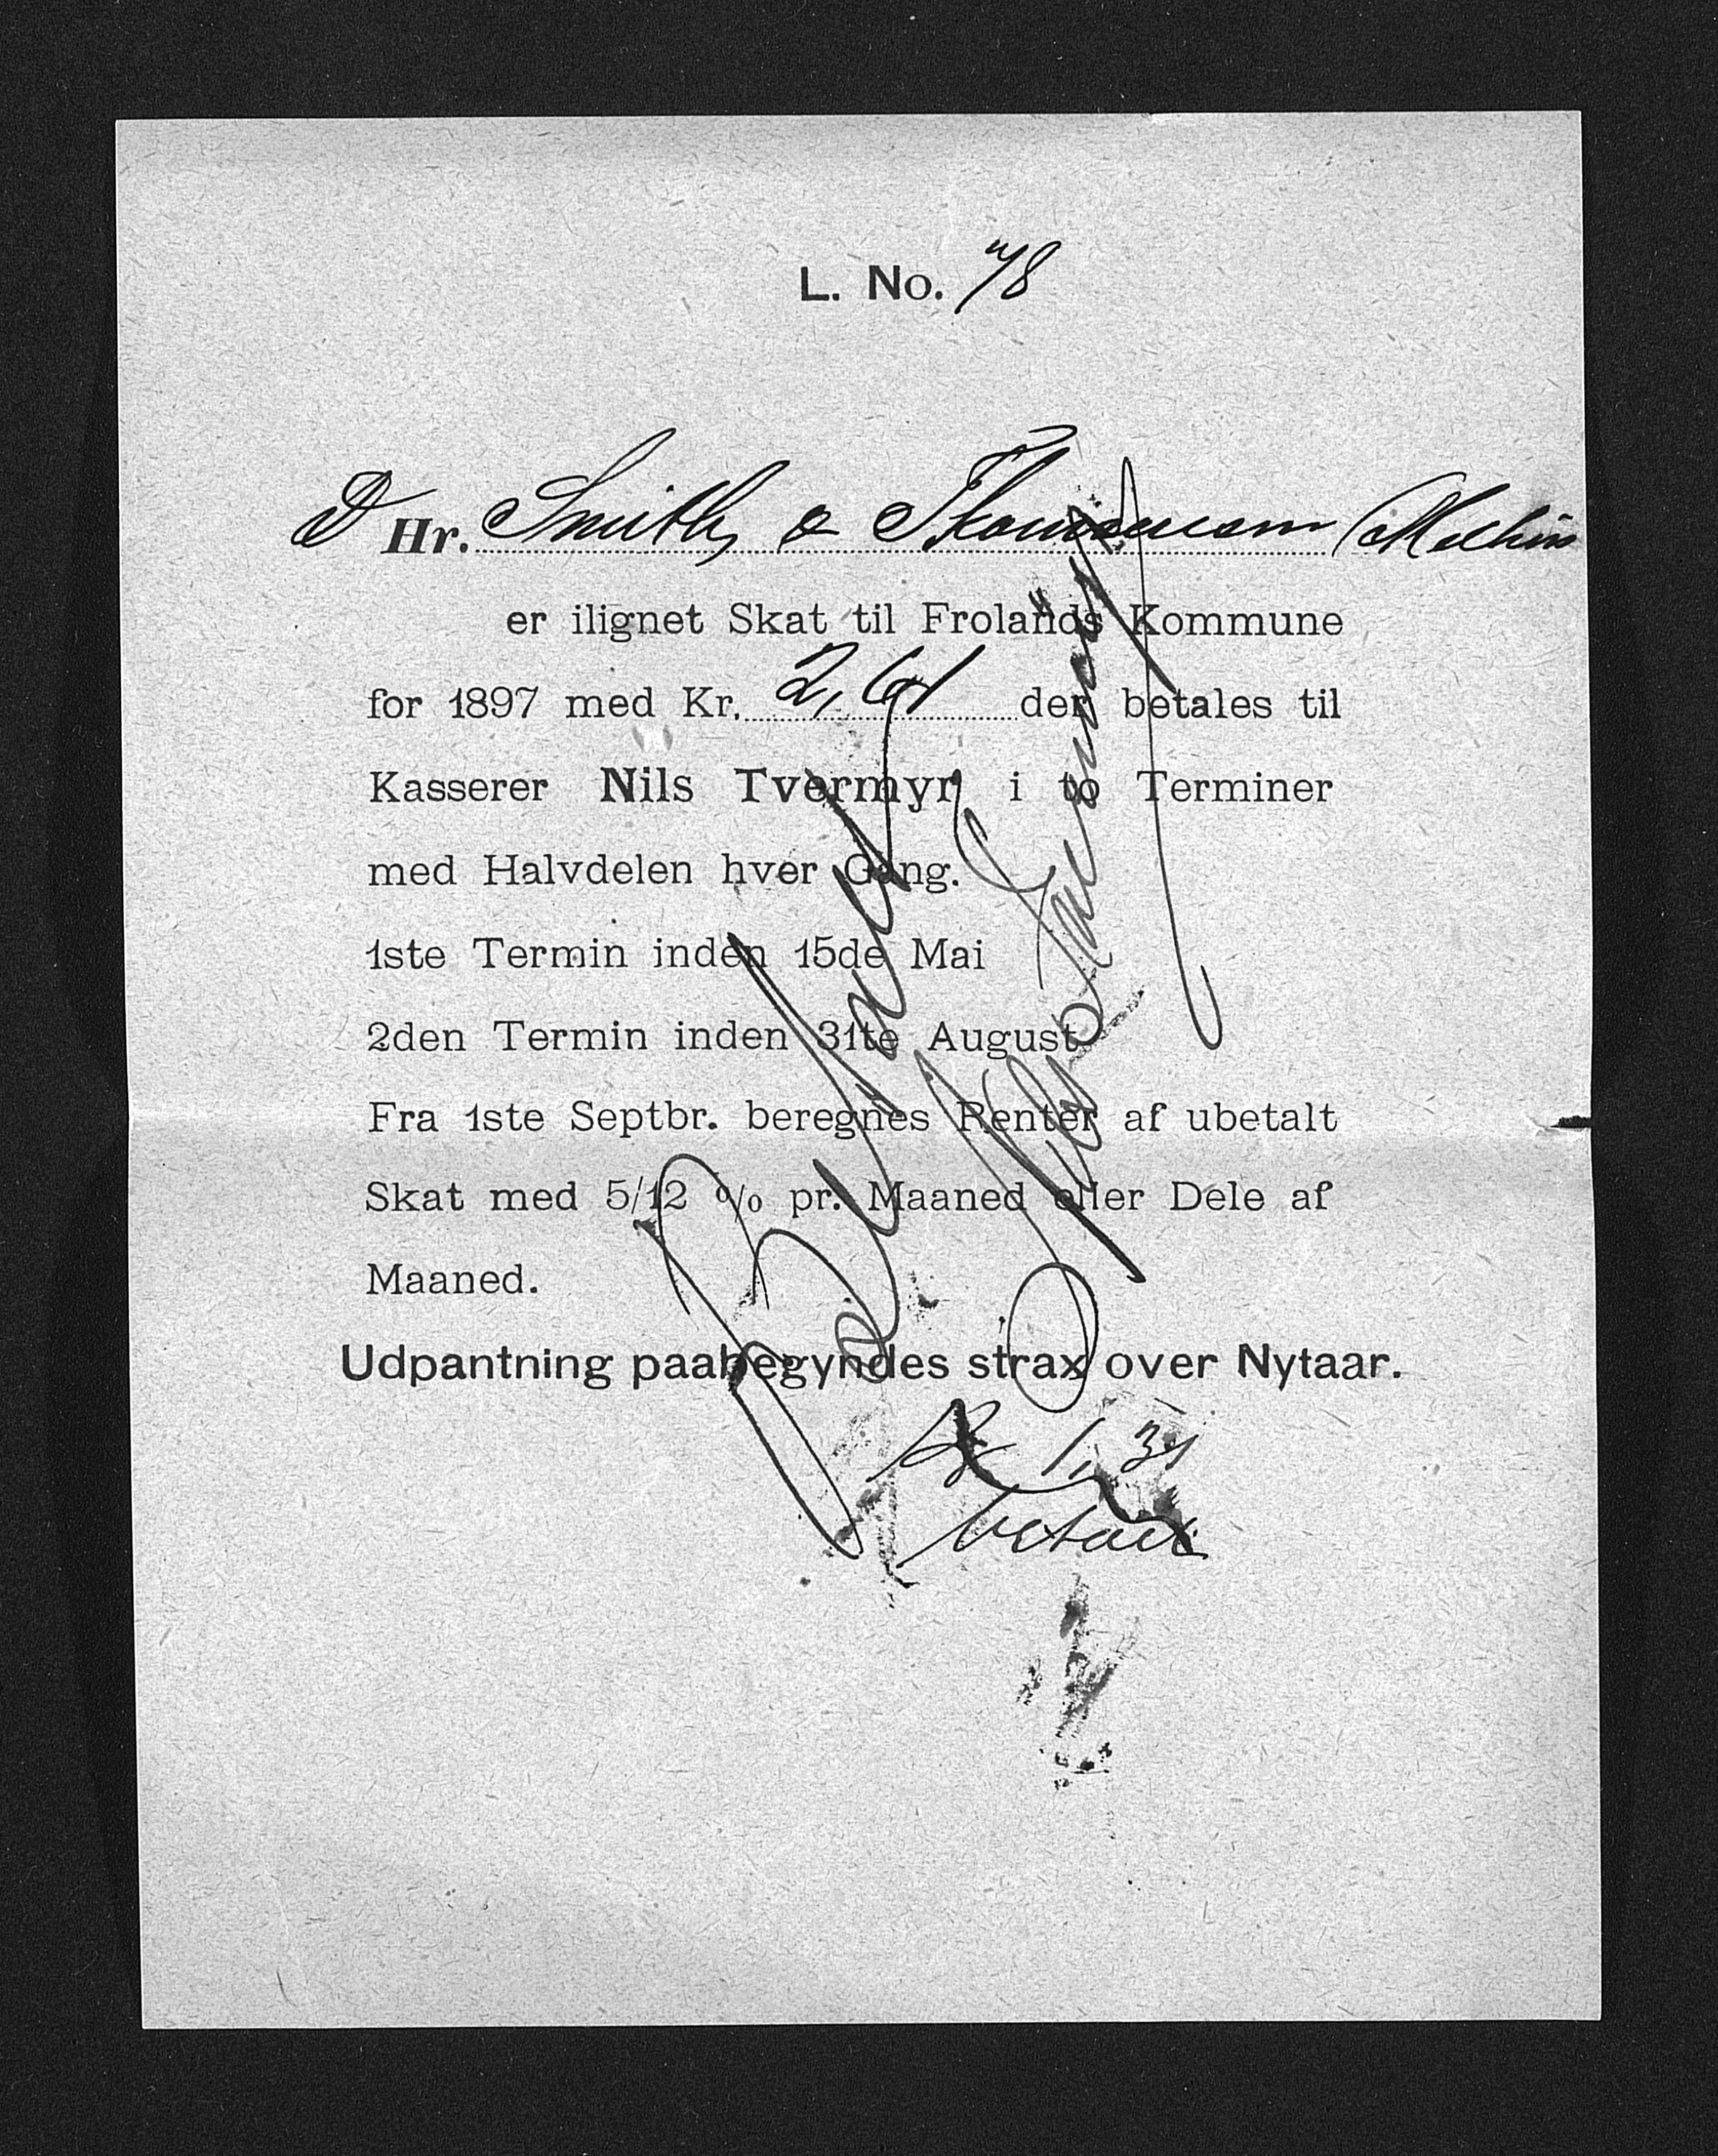 L. No. 78
D Hr. Smith & Thommesen
er ilignet Skat til Frolands Kommune
for 1897 med Kr. 2,61 der betales til
Kasserer Nils Tvermyr i to Terminer
med Halvdelen hver Gang.
1ste Termin inden 15de Mai
2den Termin inden 31te August
Fra 1ste Septbr. beregnes Renter af ubetalt
Skat med 5/12 % pr. Maaned eller Dele af
Maaned.
Udpantning paabegyndes strax over Nytaar.
Betalt
Kr 1,31
betalt